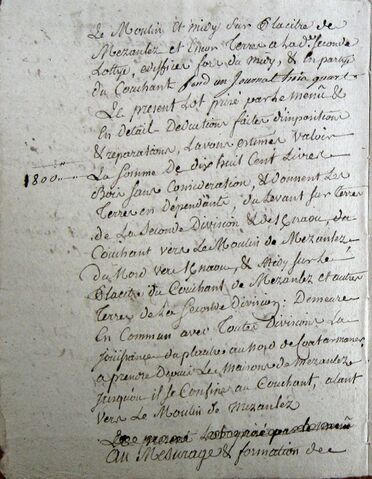 Le Moulin Et midy Sur Placitre de
Mezanlez et Encor Terre a la de. Seconde
Lottye, Edifices fors du midy, & En partye
du Couchant fond un Journal trois quart
Le present Lot prisé par le menû &
En detail Deductions faites d'imposition
& reparations, Lavons Estimés Valoir
1800 La Somme de dix huit Cent Livres
Bois Sans Consideration, & donnent Les
Terres en dependante du Levant Sur Terres
de La Seconde Division & de du
Couchant vers Le Moulin de Mezanlez
du Nord vers & Midy Sur Le
Placitre du Couchant de Mezanlez et autres
Terres de La Seconde Division: Demeure
En Commun avec Toutes Division La
Jouissance du placitre au Nord de
a prendre Depuis Le Manoir de Mezanlez
Jusqu'ou il Se Confine au Couchant, alant
Vers Le Moulin de Mezanlez
Le present Lot prisé par le menû
Au Mesurage & formation de